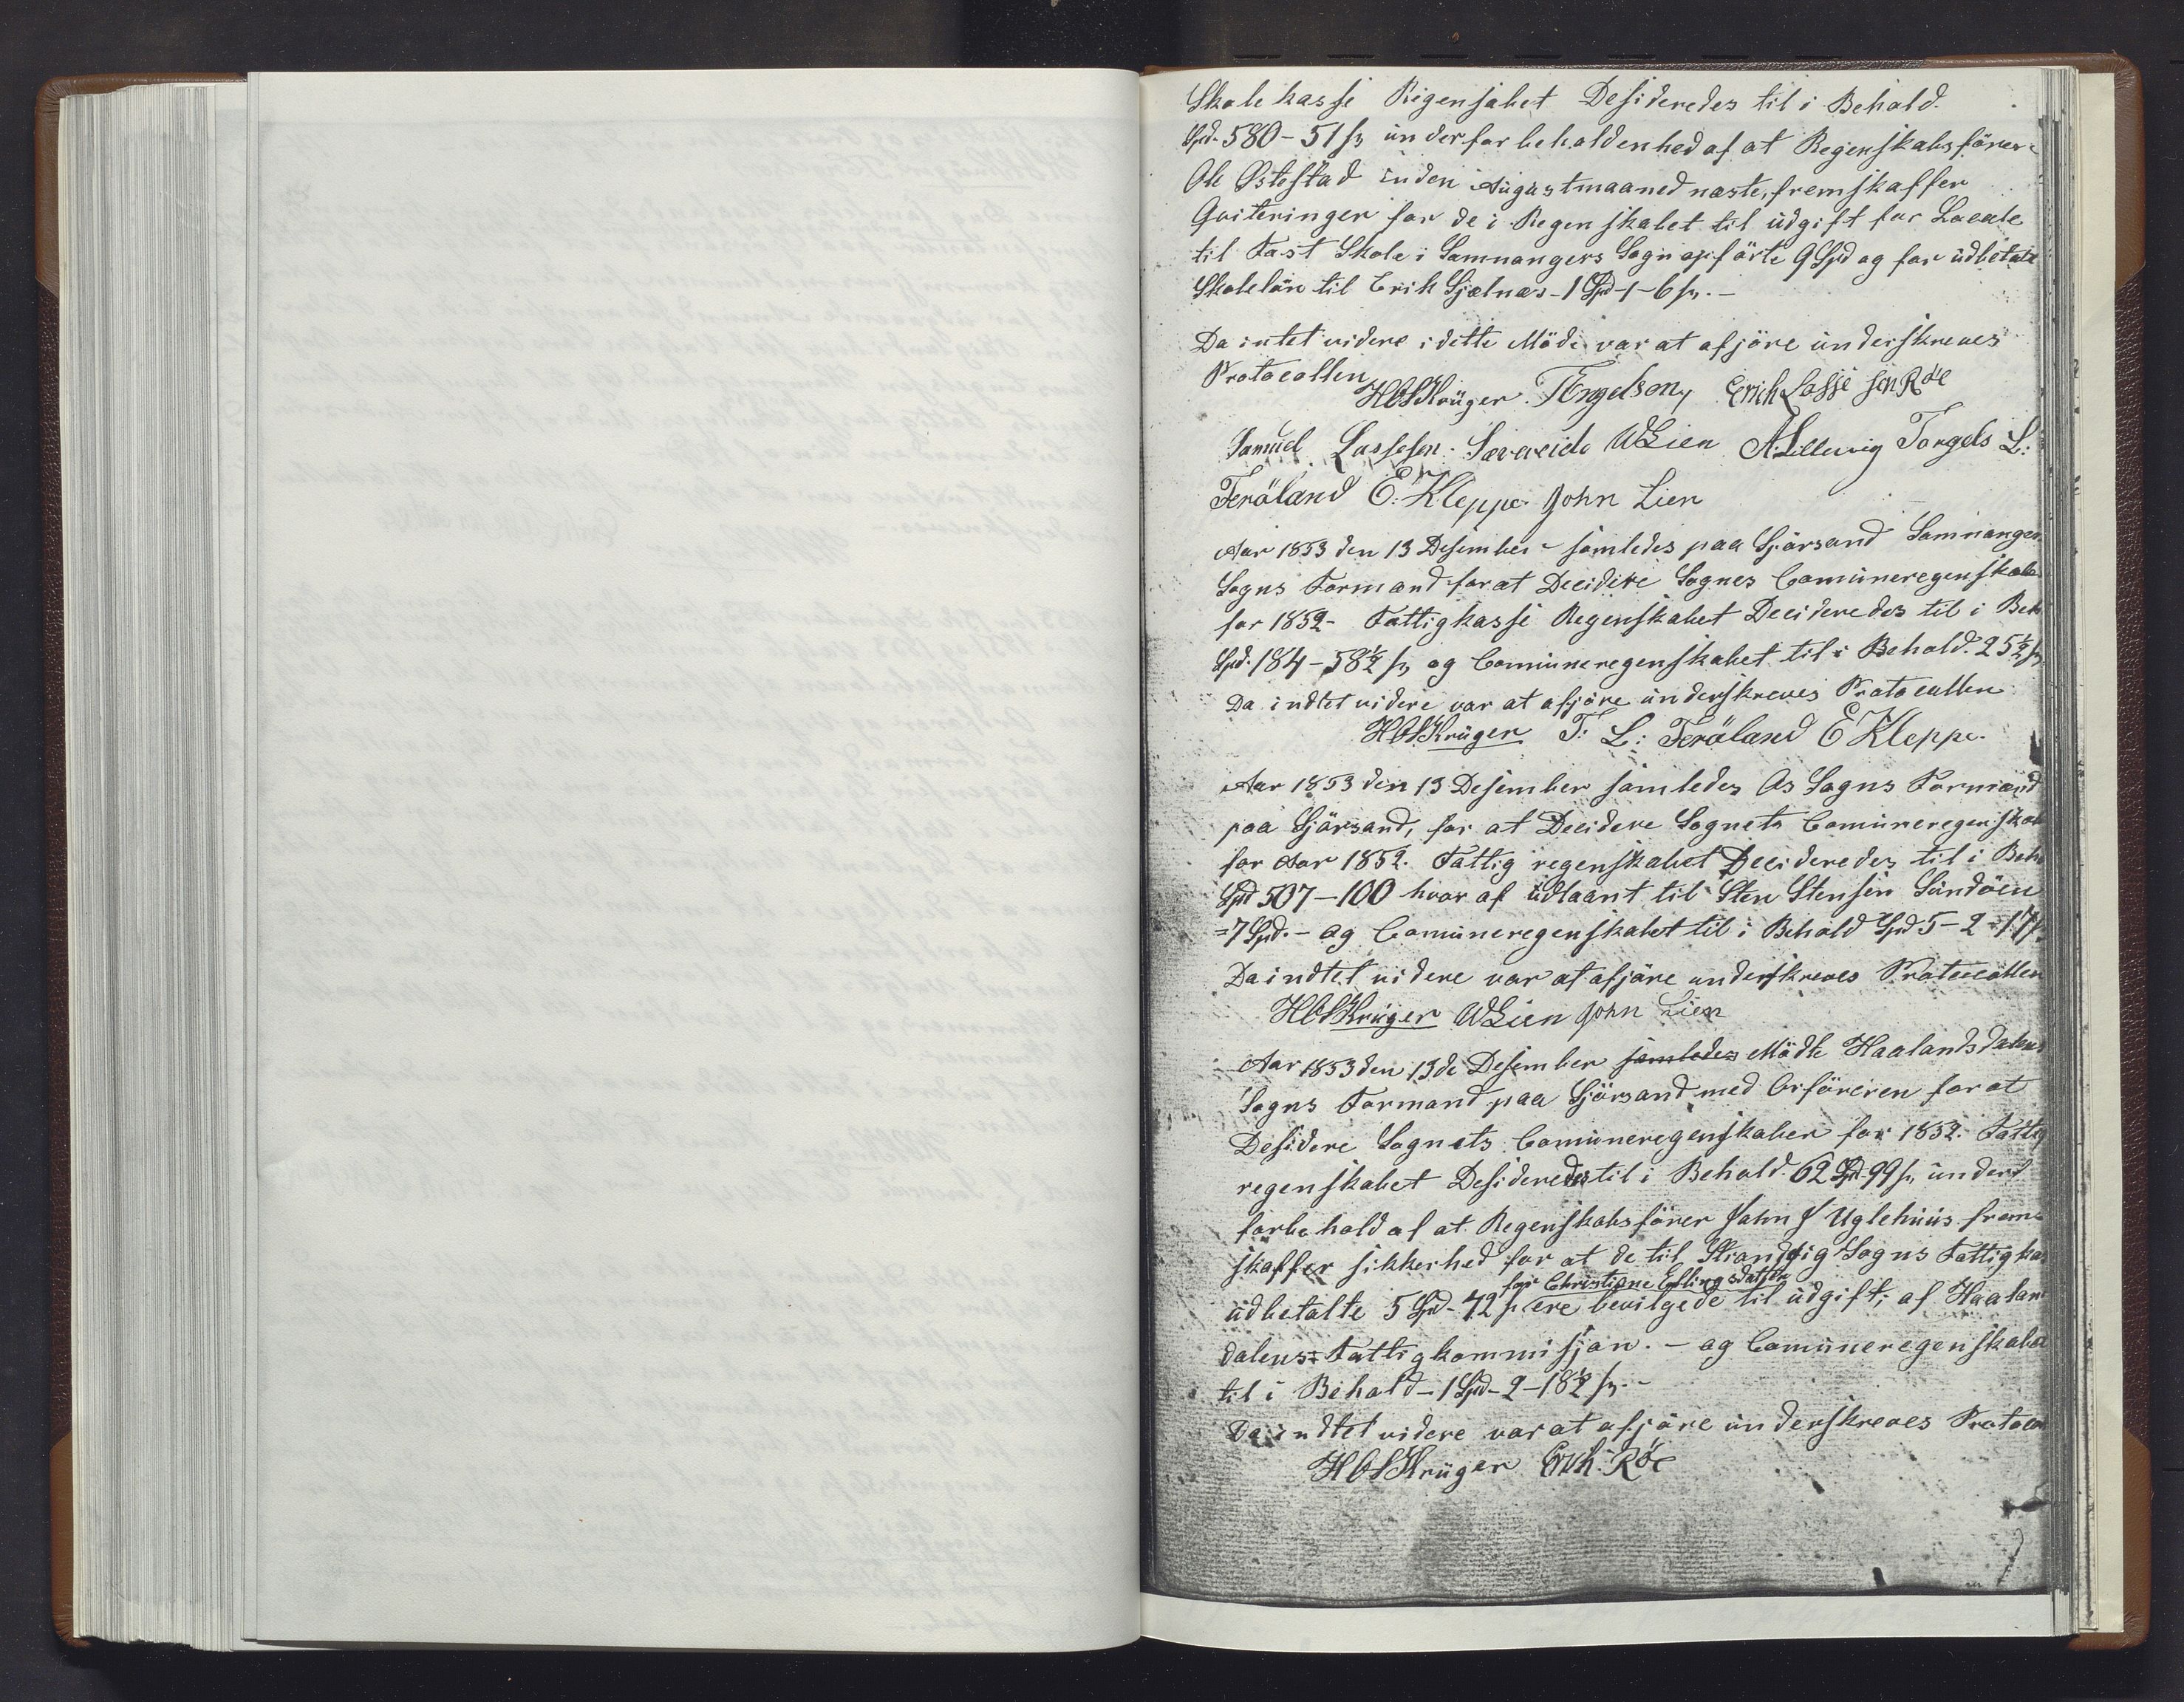 Skole kasse Rigenskabet Desideredes til i Behold.
Spd. 580-51 ß, under forbeholdenhed af at Regenskabsfører
Ole Østestad inden Augustmaaned næste, fremskaffer
Qviteringer for de i Regenskabet til udgift for Locale
til Fast Skole i Samnangers Sogn opførte 9 Spd og for udbetalt
Skolelön til Erik Gjelnæs - 1 Spd - 1 - 6 ß. -
Da intet videre i dette Möde var at afjöre underskreves
Protocollen
HOSKrüger. TEngelsen, Erich Lasse sen Röe
Samuel Lassesen Sævareide WLien A. Lillevig Torgels L:
Teröland E: Kleppe. John Lien
Aar 1853 den 13 Desember - samledes paa Gjörsand Samnanger
Sogns Formand for at Decidere Sognes Comuneregenskab
for 1852 - Fattigkasse Regenskabet Decideredes til i Beh
Spd. 184 - 58½ ß, og Comuneregenskabet til i Behold. 25½ ß
Da indtet videre var at afjöre underskreves Protocollen
HOSKrüger T: L: Teröland E Kleppe.
Aar 1853 den 13 Desember samledes Os Sogns Formænd
paa Gjörsand, for at Decidere Sognets Comuneregenskab
for Aar 1852. Fattig regenskabet Decideredes til i Beho
Spd 507 - 100 hvor af udlaant til Sten Stensen Sundöen
= 7 Spd. - og Comuneregenskabet til i Behold Spd 5 - 2 - 17 ß.
Da indtet videre var at afjöre underskreves Protocollen
HOSKrüger WLien John Lien
Aar 1853 den 13de Desember samledes Mödte Haalandsdalens
Sogns Formand paa Gjörsand med Orföreren for at
Desidere Sognets Comuneregenskaber for 1852. Fattig
regenskabet Desideredes til i Behold. 62 Spd 99 ß, under
forbehold af at Regenskabsförer John J Uglehuus frem-
skaffer sikkerhed for at de til Strandvig Sogns Fattigkas
for Christiane Ellingsdatter
udbetalte 5 Spd - 72 ß ere bevilgede til udgift; af Haalan
dalens Fattigkommisjon. - og Comuneregenskabet
til i Behold - 1 Spd - 2 - 18½ ß. -
Da indtet videre var at afjöre underskreves Protoco
HOSKrüger Erik Röe